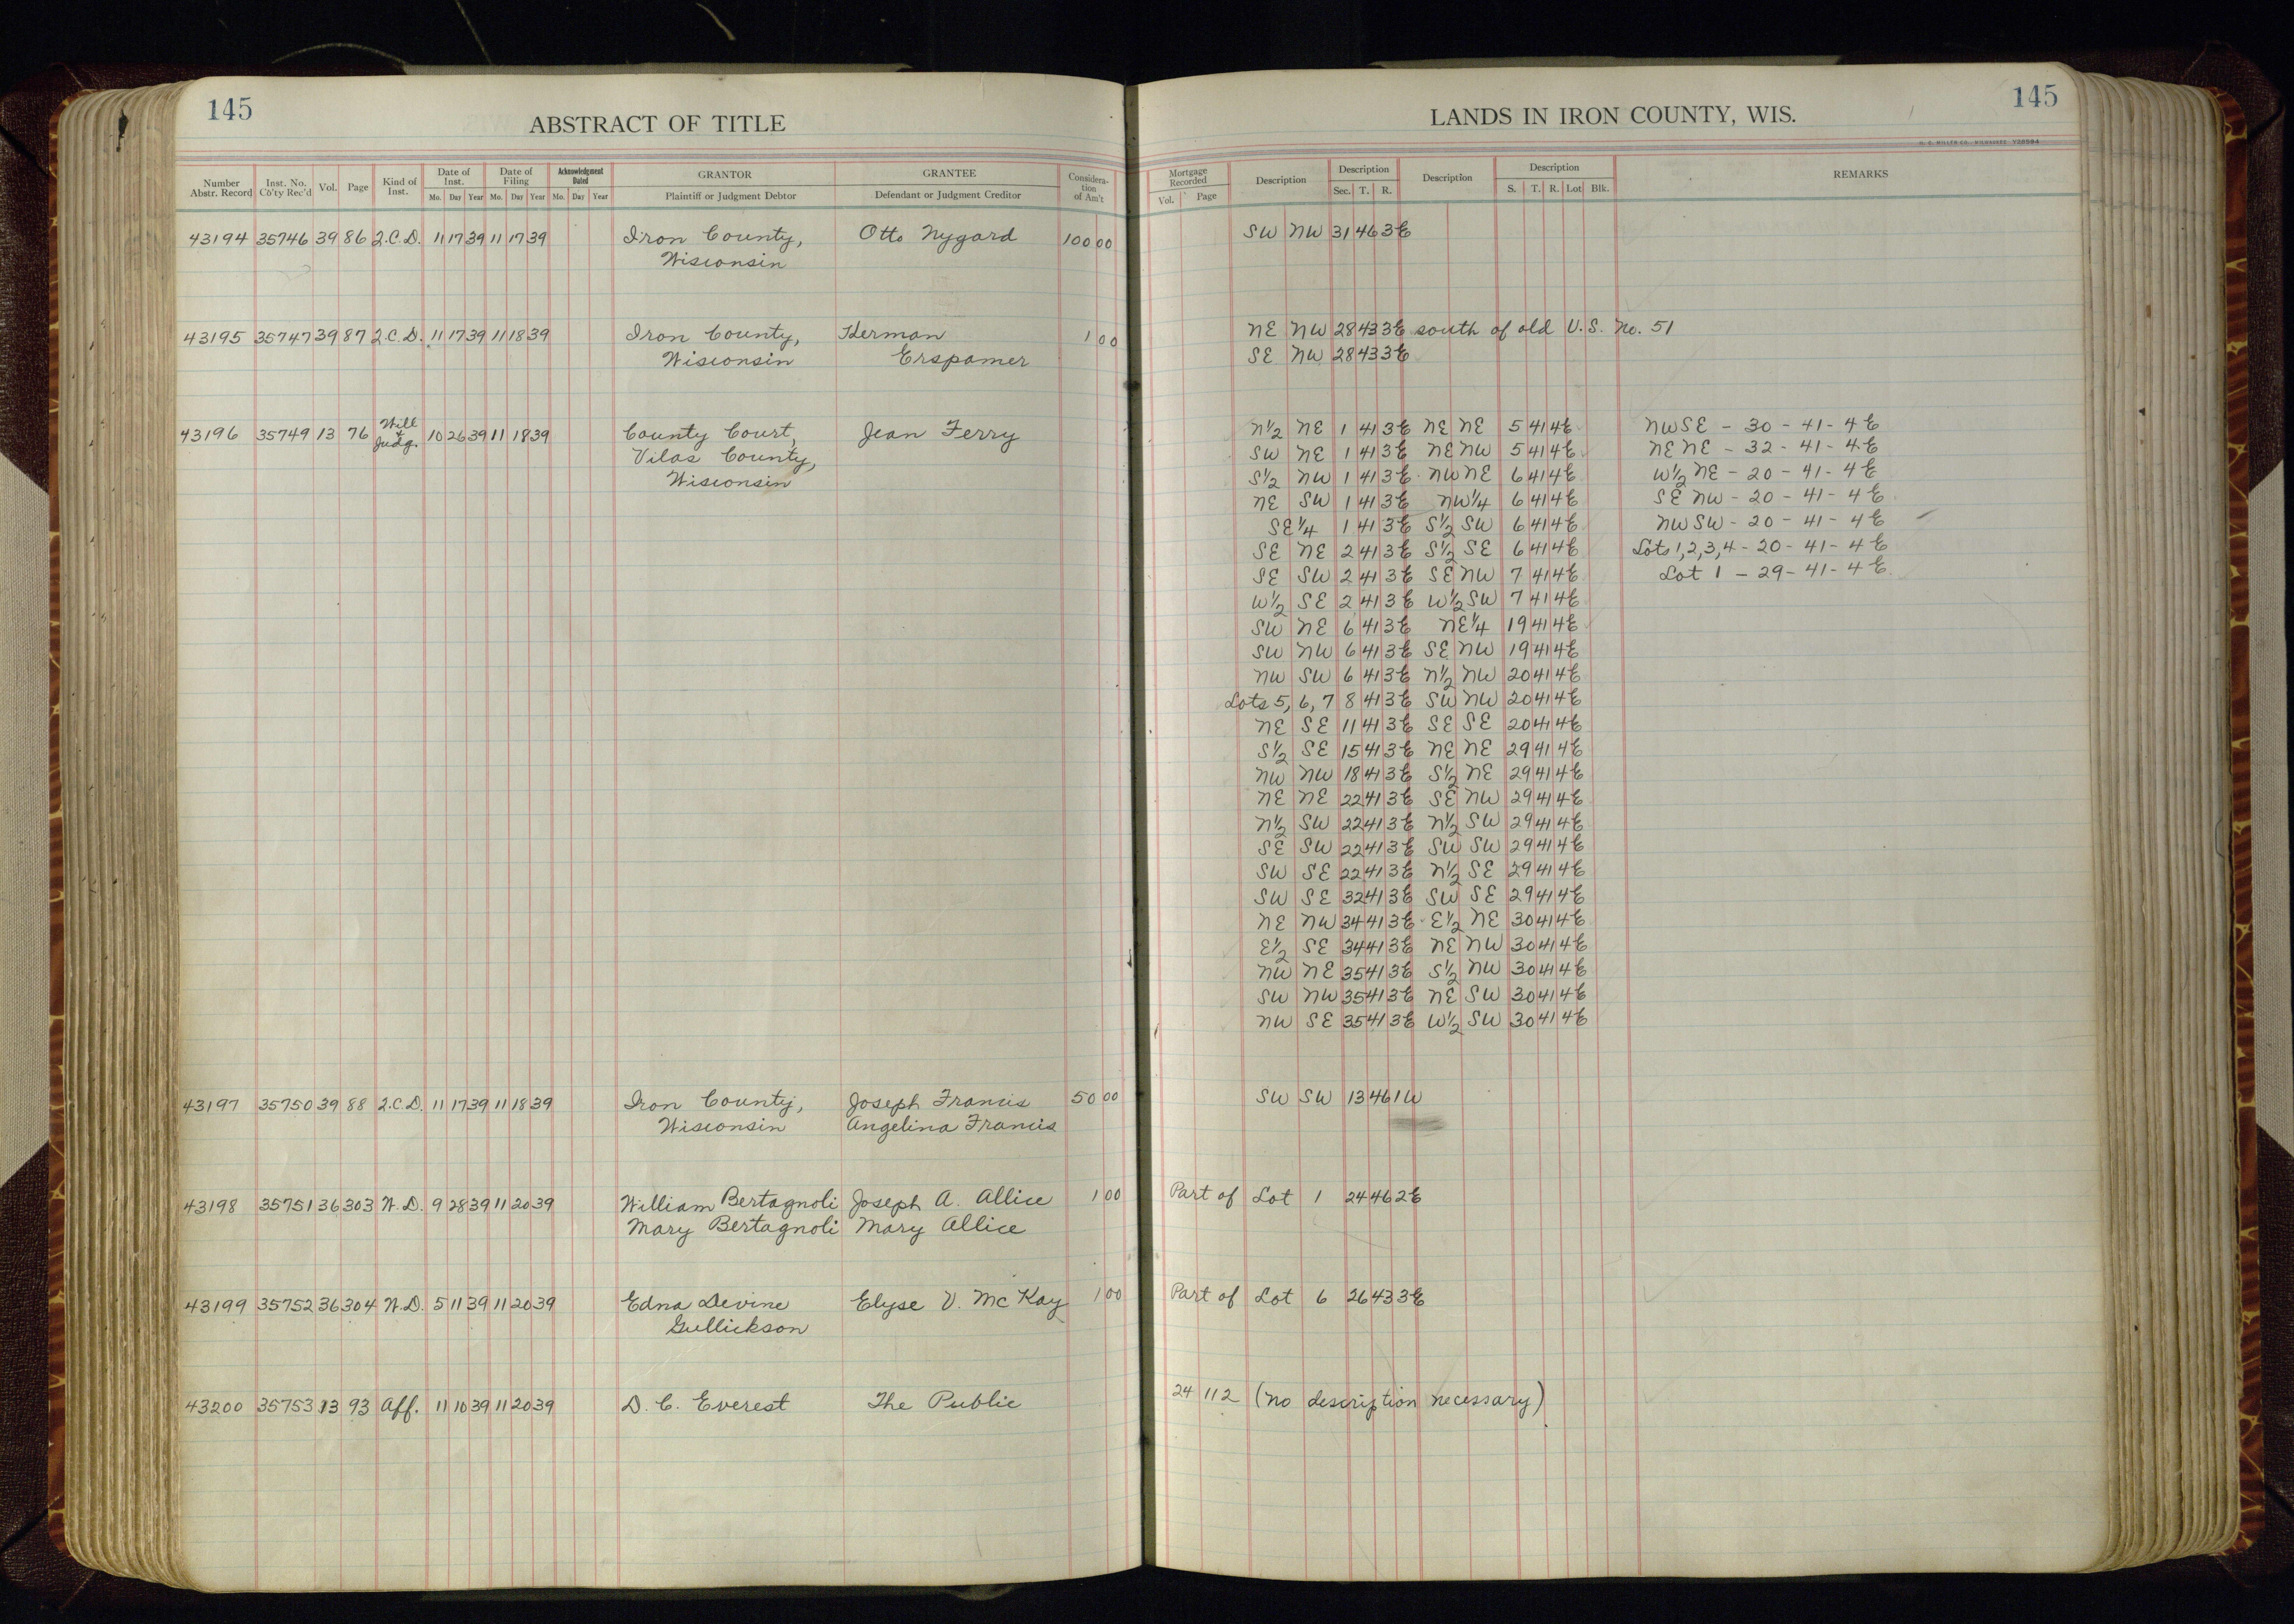 145
ABSTRACT OF TITLE
Number Abstr. Record | Inst. No. Co'ty Rec'd | Vol. | Page | Kind of Inst. | Date of Inst. Mo. Day Year | Date of Filing Mo. Day Year | Acknowledgment Dated Mo. Day Year | GRANTOR Plaintiff or Judgment Debtor | GRANTEE Defendant or Judgment Creditor | Consideration of Am't
43194 35746 39 86 2.C.D. 11 17 39 11 17 39 Iron County, Otto Nygard 100 00
Wisconsin
43195 35747 39 87 2.C.D. 11 17 39 11 18 39 Iron County, Herman 1 00
Wisconsin Erspamer
43196 35749 13 76 Will & Judg. 10 26 39 11 18 39 County Court, Jean Ferry
Vilas County,
Wisconsin
43197 35750 39 88 2.C.D. 11 17 39 11 18 39 Iron County, Joseph Francis 50 00
Wisconsin Angelina Francis
43198 35751 36 303 W.D. 9 28 39 11 20 39 William Bertagnoli Joseph A. Allice 1 00
Mary Bertagnoli Mary Allice
43199 35752 36 304 W.D. 5 11 39 11 20 39 Edna Devine Elyse V. McKay 1 00
Gullickson
43200 35753 13 93 Aff. 11 10 39 11 20 39 D. C. Everest The Public
145
LANDS IN IRON COUNTY, WIS.
H. C. MILLER CO., MILWAUKEE V28984
Mortgage Recorded Vol. Page | Description | Description Sec. T. R. | Description | Description S. T. R. Lot Blk. | REMARKS
SW NW 31 46 3E
NE NW 28 43 3E south of old U.S. No. 51
SE NW 28 43 3E
N½ NE 1 41 3E NE NE 5 41 4E NWSE - 30 - 41 - 4E
SW NE 1 41 3E NE NW 5 41 4E NENE - 32 - 41 - 4E
S½ NW 1 41 3E NW NE 6 41 4E W½ NE - 20 - 41 - 4E
NE SW 1 41 3E NW¼ 6 41 4E SE NW - 20 - 41 - 4E
SE¼ 1 41 3E S½ SW 6 41 4E NWSW - 20 - 41 - 4E
SE NE 2 41 3E S½ SE 6 41 4E Lots 1,2,3,4 - 20 - 41 - 4E
SE SW 2 41 3E SE NW 7 41 4E Lot 1 - 29 - 41 - 4E
W½ SE 2 41 3E W½ SW 7 41 4E
SW NE 6 41 3E NE¼ 19 41 4E
SW NW 6 41 3E SE NW 19 41 4E
NW SW 6 41 3E N½ NW 20 41 4E
Lots 5, 6, 7 8 41 3E SW NW 20 41 4E
NE SE 11 41 3E SE SE 20 41 4E
S½ SE 15 41 3E NE NE 29 41 4E
NW NW 18 41 3E S½ NE 29 41 4E
NE NE 22 41 3E SE NW 29 41 4E
N½ SW 22 41 3E N½ SW 29 41 4E
SE SW 22 41 3E SW SW 29 41 4E
SW SE 22 41 3E N½ SE 29 41 4E
SW SE 32 41 3E SW SE 29 41 4E
NE NW 34 41 3E E½ NE 30 41 4E
E½ SE 34 41 3E NE NW 30 41 4E
NW NE 35 41 3E S½ NW 30 41 4E
SW NW 35 41 3E NE SW 30 41 4E
NW SE 35 41 3E W½ SW 30 41 4E
SW SW 13 46 1W
Part of Lot 1 24 46 2E
Part of Lot 6 26 43 3E
24 112 (no description necessary)